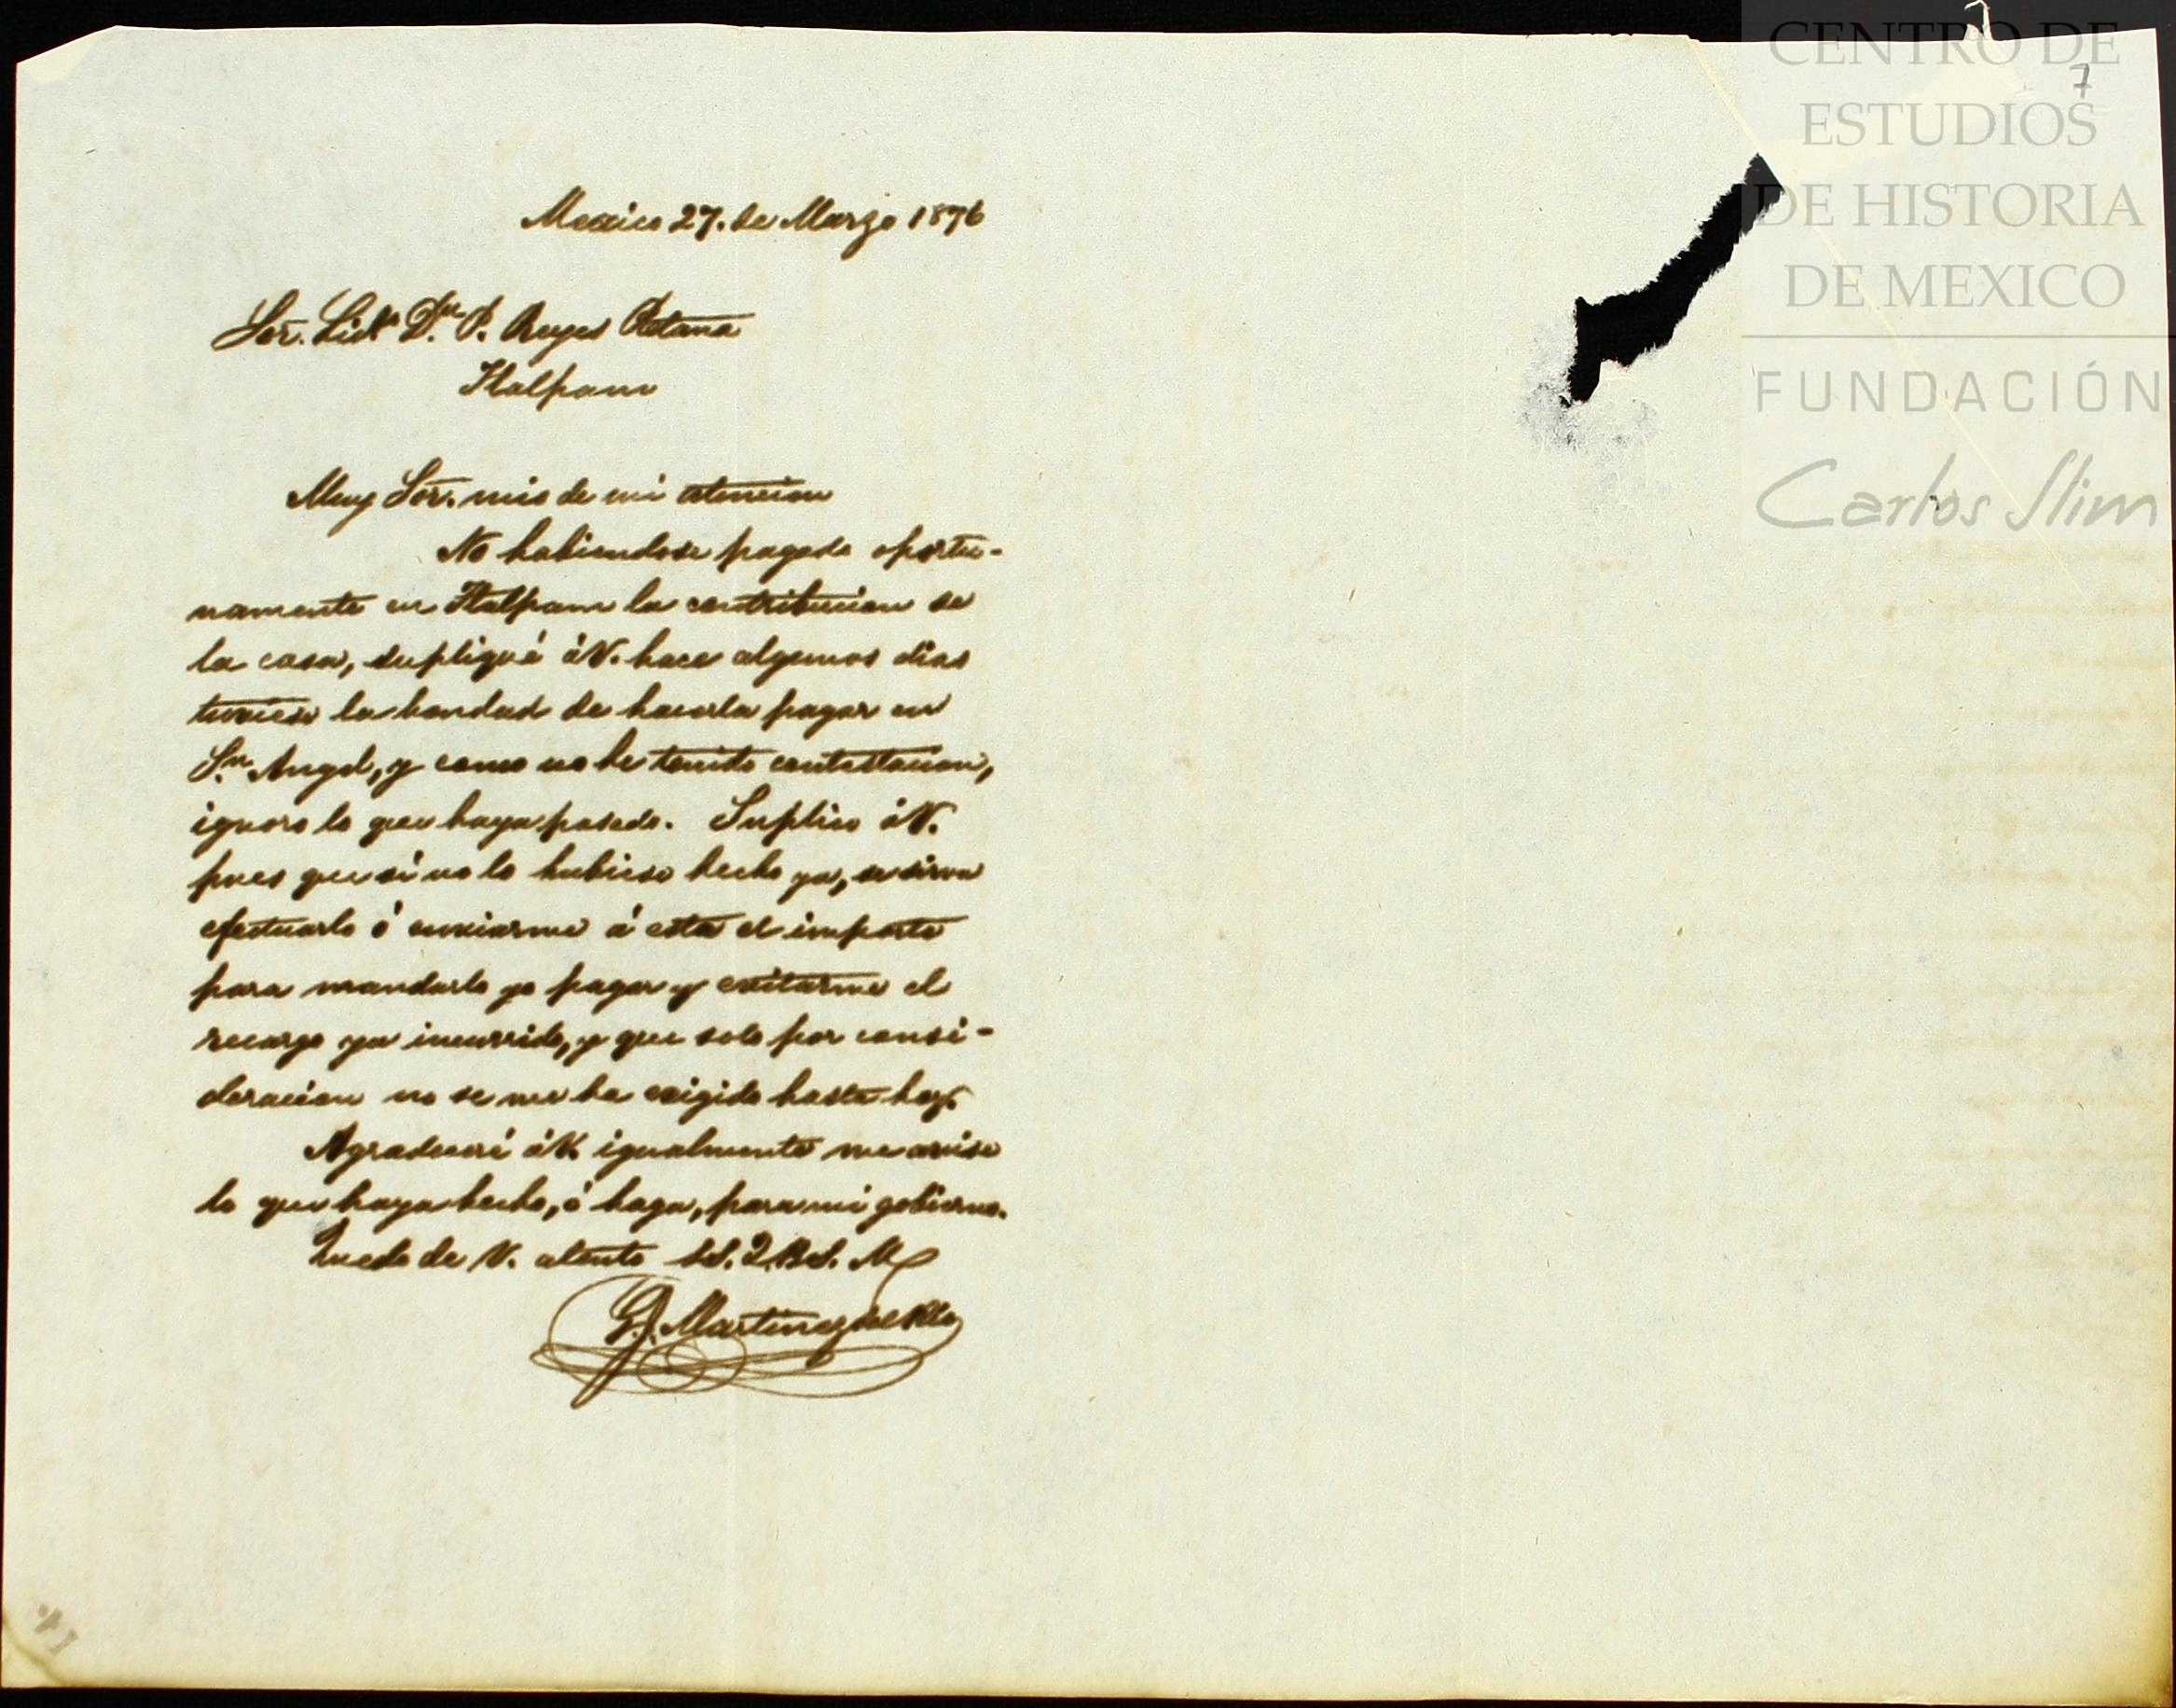 7
CENTRO DE
ESTUDIOS
DE HISTORIA
DE MEXICO
FUNDACIÓN
Carlos Slim
Mexico 27. de Marzo 1876
Sor. Licdo. Dn. P. Reyes Retana
Tlalpam
Muy Sor. mio de mi atencion
No habiendose pagado oportu-
namente en Tlalpam la contribucion de
la casa, supliqué á V. hace algunos dias
tuviese la bondad de hacerla pagar en
Sn. Angel, y como no he tenido contestacion,
ignoro lo que haya pasado. Suplico á V.
pues que si no lo hubiese hecho ya, se sirva
efectuarlo ó enviarme á esta el importe
para mandarlo yo pagar y evitarme el
recargo ya incurrido, y que solo por consi-
deracion no se me ha exigido hasta hoy.
Agradeceré á V. igualmente me avise
lo que haya hecho, ó haga, para mi gobierno.
Quedo de V. atento S.S. Q.B.S.M.
Martinez del Rio